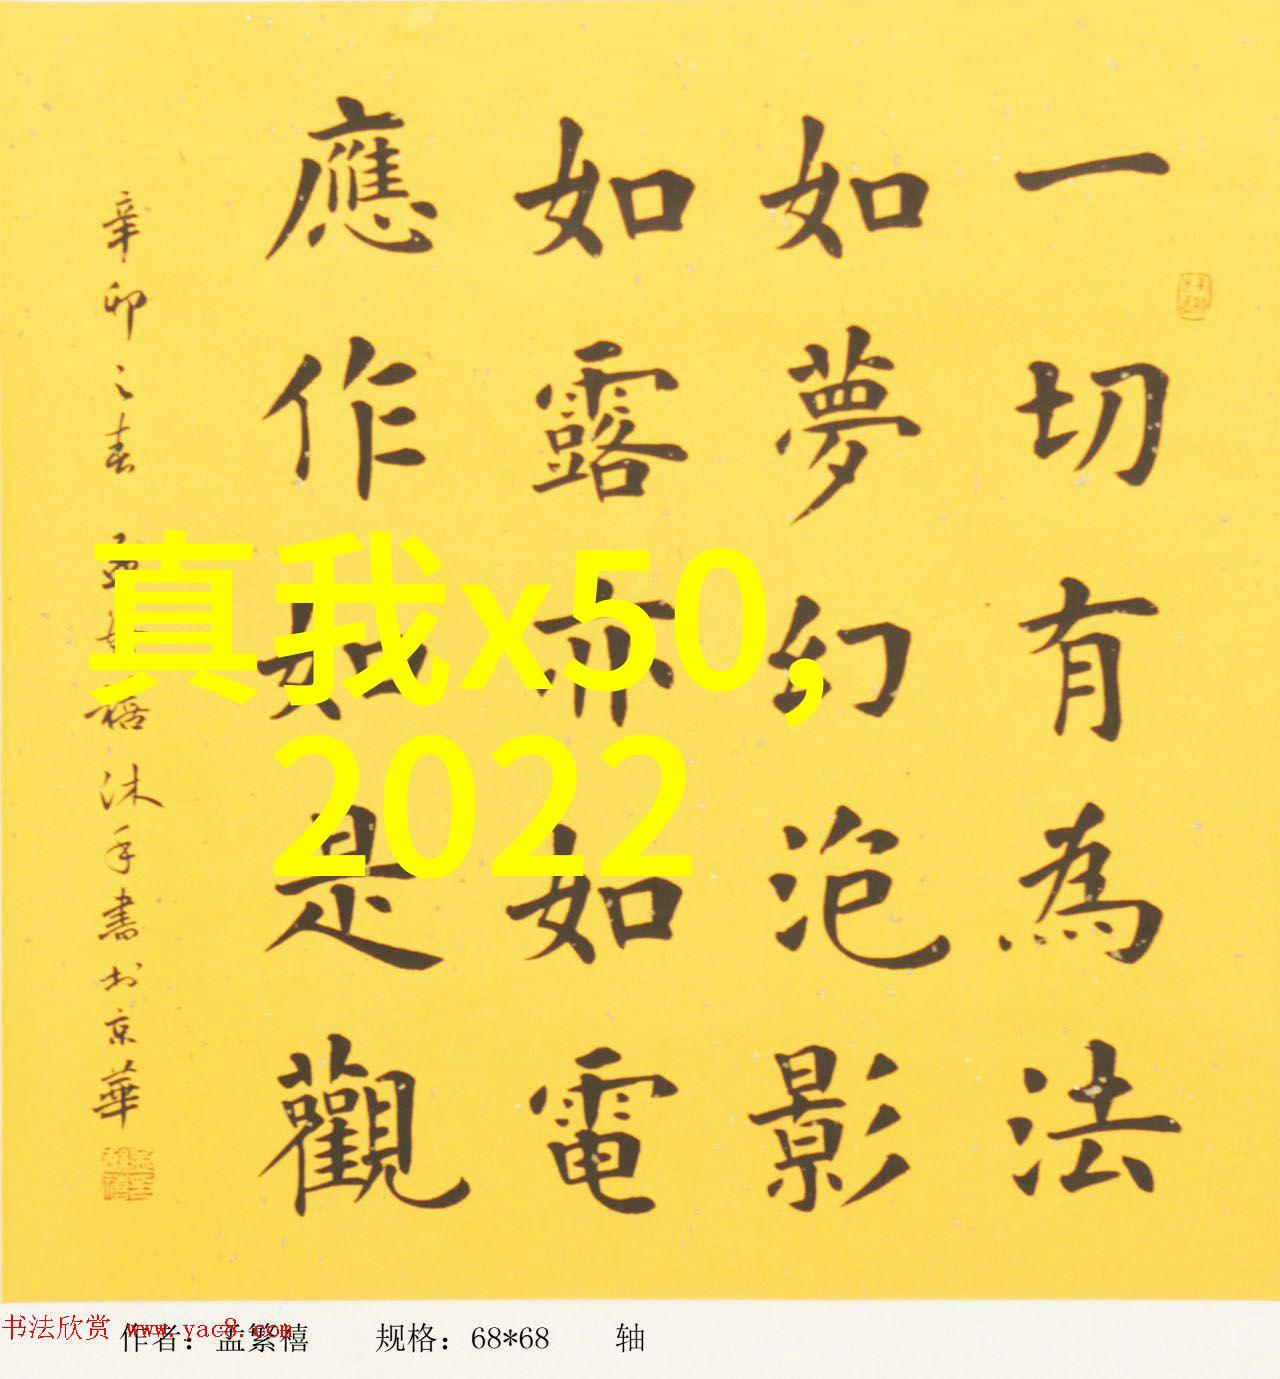 一切有為法
如夢幻泡影
如露亦如電
應作如是觀
辛卯之春 孟繁禧沐手書於京華
真我x50,
2022
书法欣赏 www.yac8.com
作者：孟繁禧 规格：68*68 轴